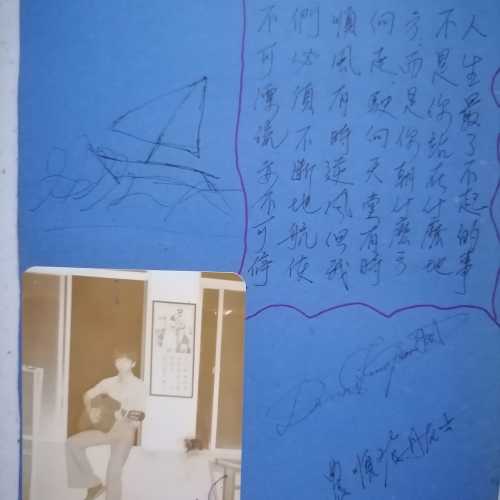 人生最了不起的事
不是你站在什麼地
方而是你朝什麼方
向走駛向天堂有時
順風有時逆風但我
們必須不斷地航使
不可漂流亦不可停